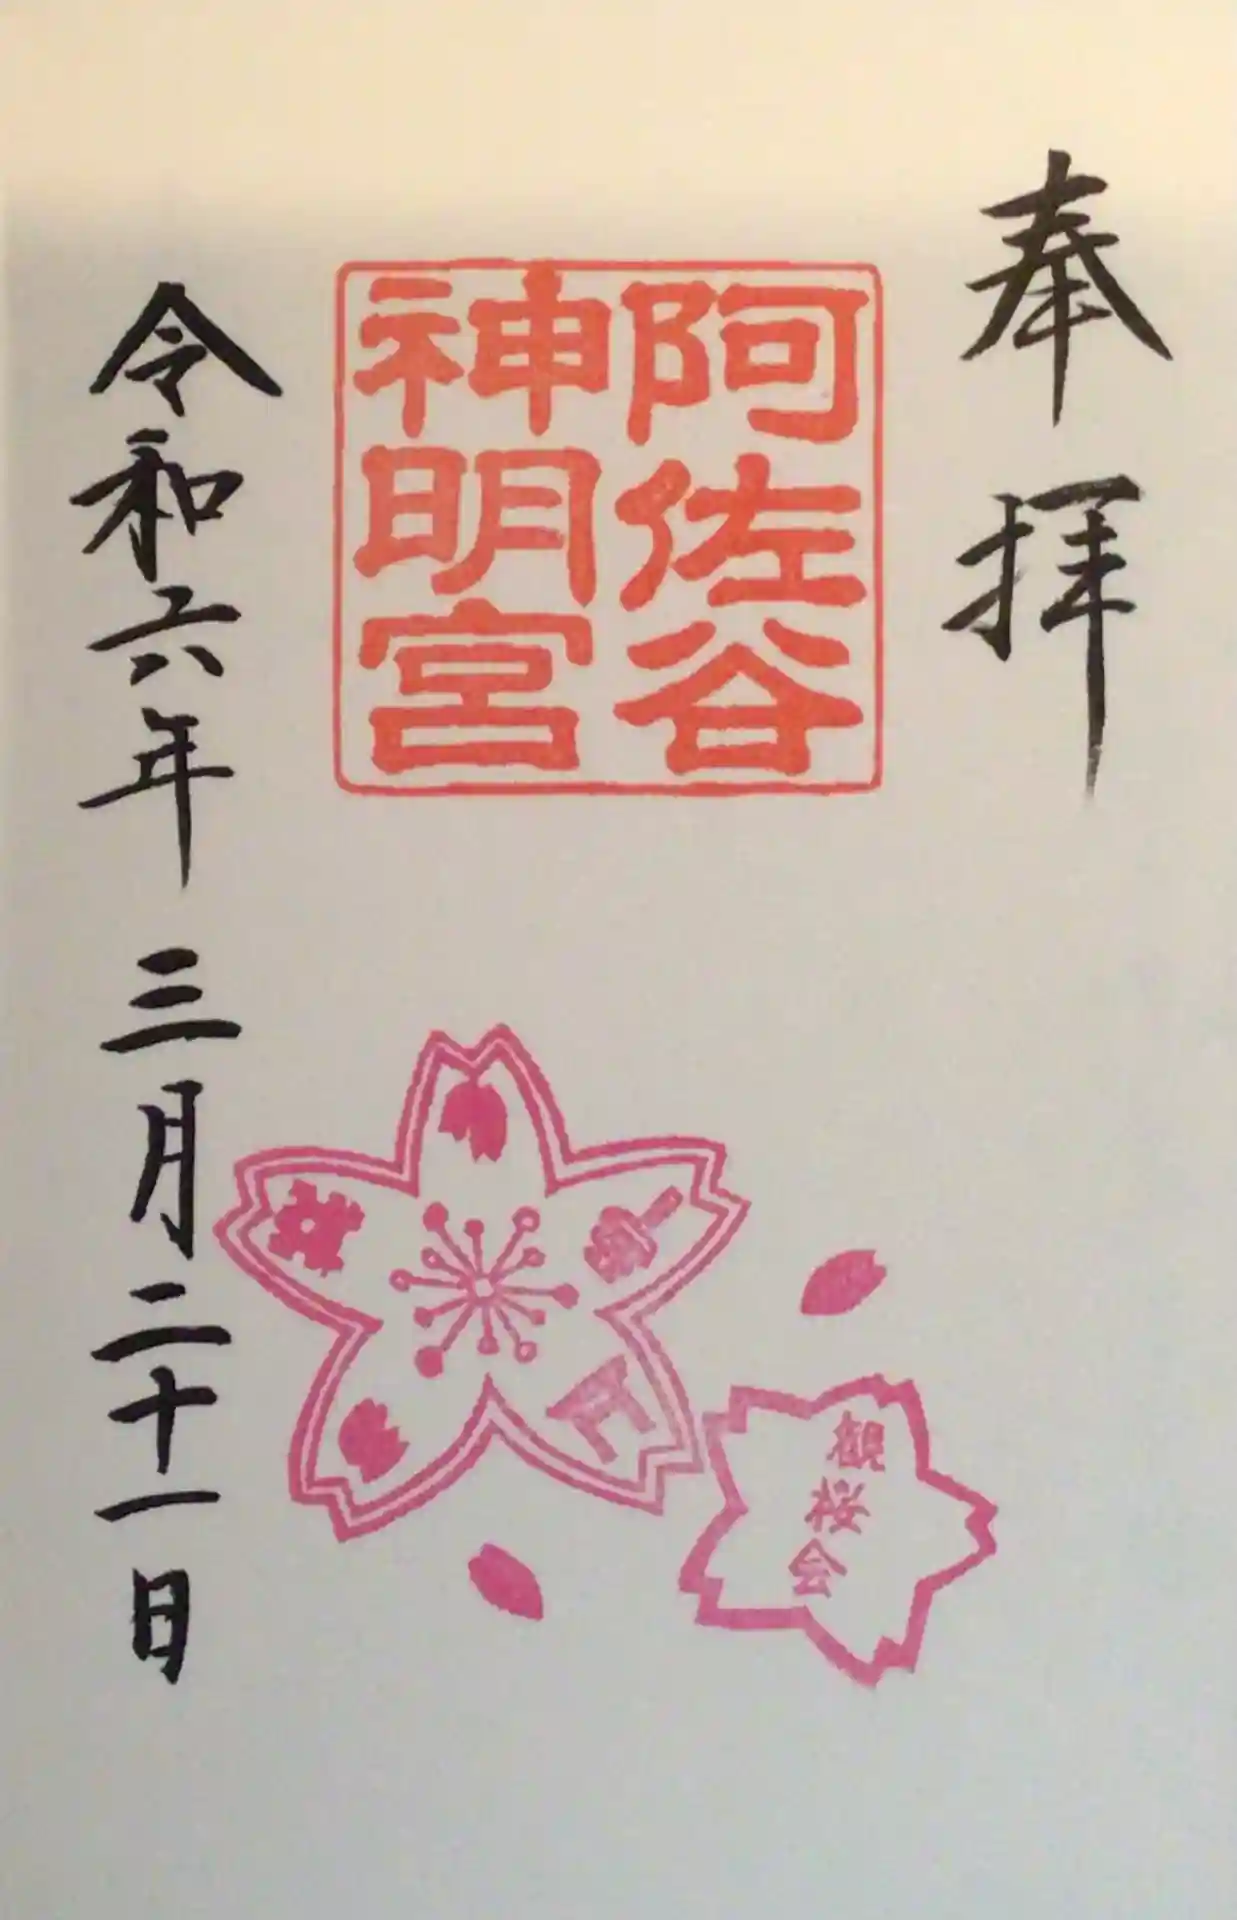 奉拝
阿佐谷
神明宮
令和六年三月二十一日
観桜会